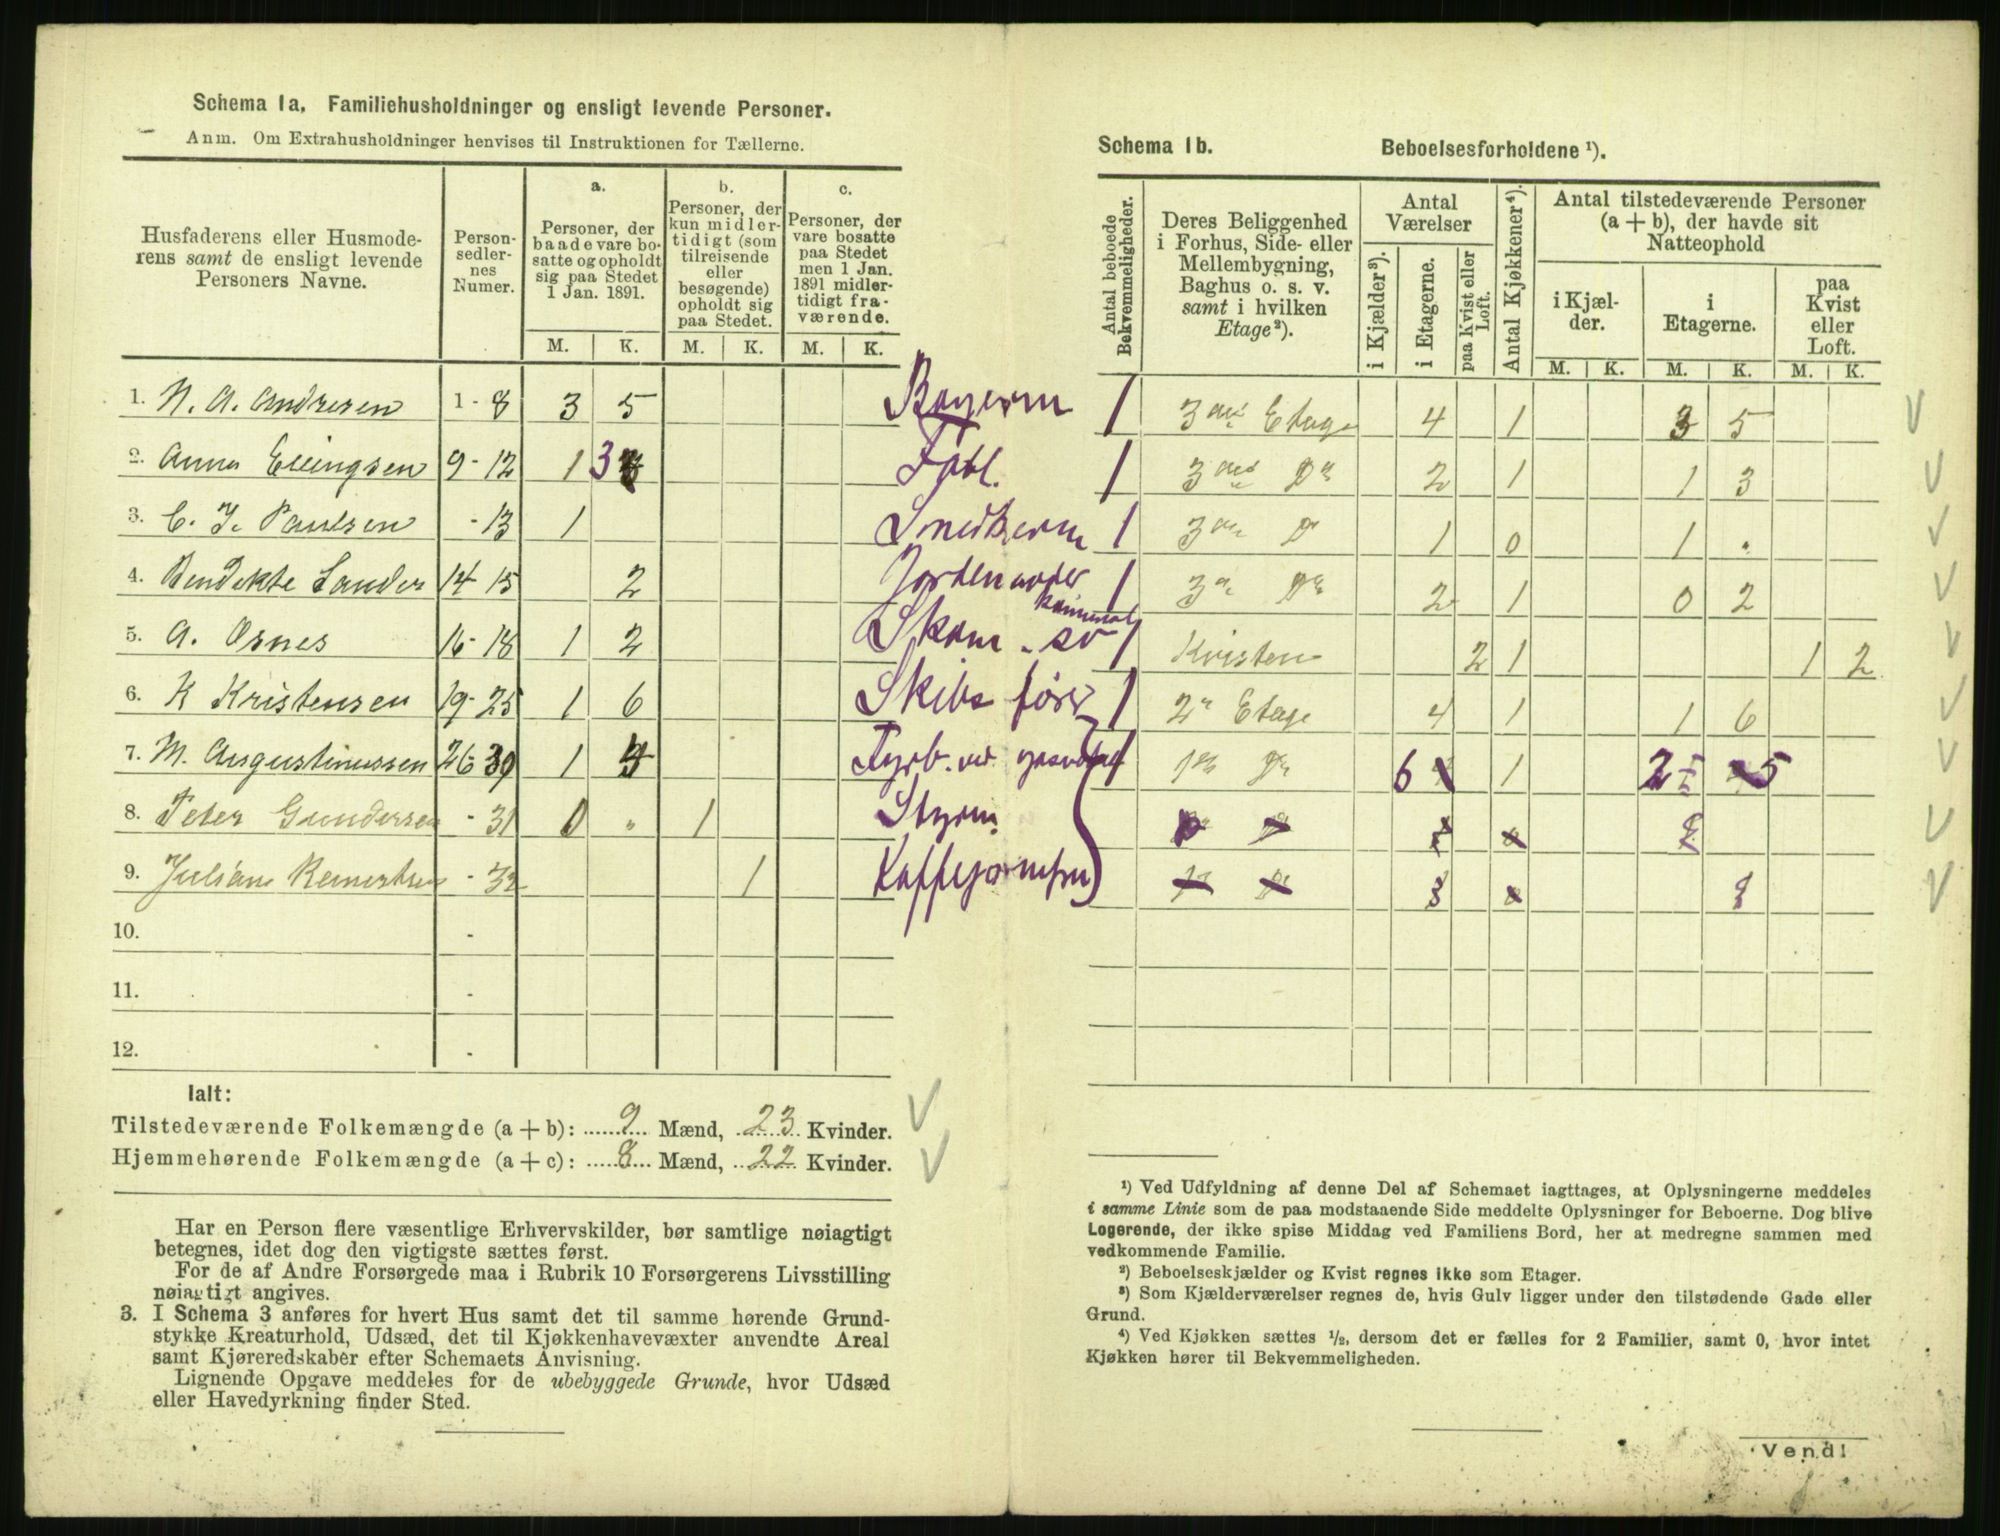 Schema 1a. Familiehusholdninger og ensligt levende Personer.
Anm. Om Extrahusholdninger henvises til Instruktionen for Tællerne.
Husfaderens eller Husmode-
rens samt de ensligt levende
Personers Navne.
Person-
sedler-
nes
Numer.
a.
Personer, der
baade vare bo-
satte og opholdt
sig paa Stedet
1 Jan. 1891.
b.
Personer, der
kun midler-
tidigt (som
tilreisende
eller
besøgende)
opholdt sig
paa Stedet.
c.
Personer, der
vare bosatte
paa Stedet
men 1 Jan.
1891 midler-
tidigt fra-
værende.
M. K. M. K. M. K.
1. N. A. Andresen 1 - 8 3 5
2. Anna Ellingsen 9 - 12 1 3
3. C. J. Paulsen - 13 1
4. Bendikte Sander 14 - 15 2
5. A. Osnes 16 - 18 1 2
6. K Kristensen 19 - 25 1 6
7. M. Augustinussen 26 - 30 1 4
8. Peter Gundersen - 31 0 " 1
9. Juliane - 32 1
10. -
11. -
12. -
Ialt:
Tilstedeværende Folkemængde (a + b): 9 Mænd, 23 Kvinder.
Hjemmehørende Folkemængde (a + c): 8 Mænd, 22 Kvinder.
Har en Person flere væsentlige Erhvervskilder, bør samtlige nøiagtigt
betegnes, idet dog den vigtigste sættes først.
For de af Andre Forsørgede maa i Rubrik 10 Forsørgerens Livsstilling
nøiagtigt angives.
3. I Schema 3 anføres for hvert Hus samt det til samme hørende Grund-
stykke Kreaturhold, Udsæd, det til Kjøkkenhavevæxter anvendte Areal
samt Kjøreredskaber efter Schemaets Anvisning.
Lignende Opgave meddeles for de ubebyggede Grunde, hvor Udsæd
eller Havedyrkning finder Sted.
Fabl.
Jordemoder
kommunal
Skibsfører
Styrm.
Schema 1b. Beboelsesforholdene ¹).
Antal beboede
Bekvemmeligheder.
Deres Beliggenhed
i Forhus, Side- eller
Mellembygning,
Baghus o. s. v.
samt i hvilken
Etage²).
Antal
Værelser
i Kjælder³).
i Etagerne.
paa Kvist eller
Loft.
Antal Kjøkkener⁴).
Antal tilstedeværende Personer
(a + b), der havde sit
Natteophold
i Kjæl-
der.
i
Etagerne.
paa
Kvist
eller
Loft.
M. K. M. K. M. K.
1 3 Etage 4 1 3 5
1 3 Do 2 1 1 3
1 3 D 1 0 1 "
1 3 Do 2 1 0 2
1 Kvisten 2 1 1 2
1 2 Etage 4 1 1 6
1 1 Do 6 1 2 5
¹) Ved Udfyldning af denne Del af Schemaet iagttages, at Oplysningerne meddeles
i samme Linie som de paa modstaaende Side meddelte Oplysninger for Beboerne. Dog blive
Logerende, der ikke spise Middag ved Familiens Bord, her at medregne sammen med
vedkommende Familie.
²) Beboelseskjælder og Kvist regnes ikke som Etager.
³) Som Kjælderværelser regnes de, hvis Gulv ligger under den tilstødende Gade eller
Grund.
⁴) Ved Kjøkken sættes ½, dersom det er fælles for 2 Familier, samt 0, hvor intet
Kjøkken hører til Bekvemmeligheden.
Vend!